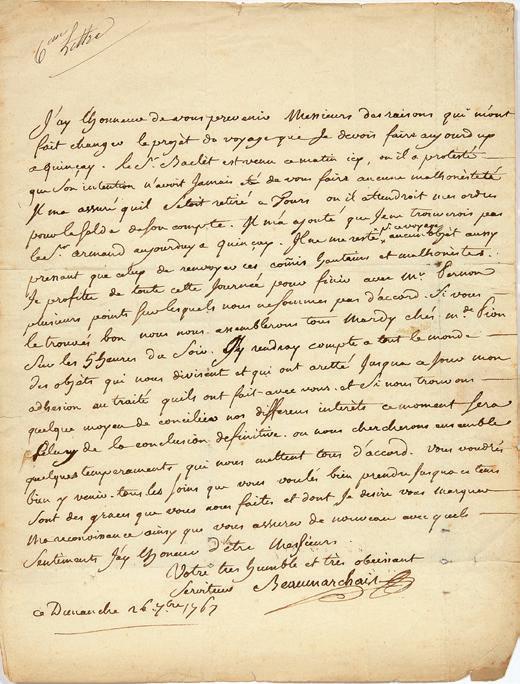 6eme Lettre
J'ay Lhonneur de vous prevenir Messieurs des raisons qui m'ont
fait changer le projet du voyage que Je devois faire aujourd'uy
a quinçay. le Sr. Baclet est venu ce matin icy, ou il a protesté
que son intention n'avoit Jamais eté de vous faire aucune malhonêteté
Il m'a assuré quil S'etoit retiré a Tours ou il attendroit mes ordres
pour le solde de son compte. Il m'a ajouté que Je ne trouverois pas
le sr. armand aujourduy a quinçay. Il ne me reste aucun objet aussy
pressant que celuy de renvoyer ces comis hauteurs et malhonêtes.
Je profitte de toute cette Journée pour finir avec Mr. Pernon
plusieurs points sur lesquels nous ne sommes pas d'accord. Si vous
le trouvés bon nous nous assemblerons tous Mardy chés Mr. de Pion
Sur les 5 heures du Soir. J'y rendray compte a tout le monde
des objets qui nous divisent et qui ont aretté Jusqua ce Jour mon
adhesion au traité quils ont fait avec vous. et Si nous trouvons
quelque moyen de concilier nos differens interêts ce moment Sera
Celuy de la conclusion definitive. ou nous chercherons ensemble
quelques temperaments qui nous mettent tous d'accord. vous voudrés
bien y venir. tous les soins que vous voulés bien prendre Jusqua ce tems
Sont des graces que vous nous faites et dont Je desire vous marquer
Ma reconoissance ainsy que vous assurer de nouveau avec quels
Sentiments J'ay Lhonneur d'être Messieurs.
Votre tres humble et tres obeissant
Serviteur Beaumarchais
ce Dimanche 26 7bre 1767